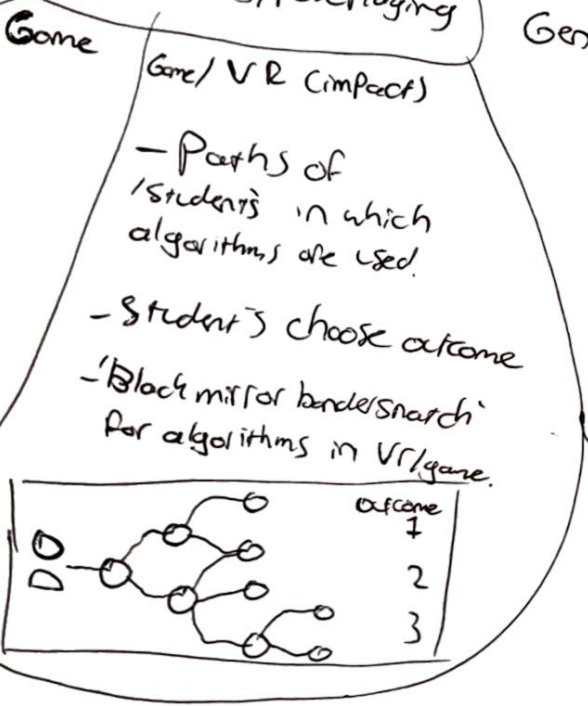 Game
Gen
Game/ VR (impact)
- Paths of
'students in which
algorithms are used.
- Student's choose outcome
- 'Black mirror bandersnatch'
for algorithms in Vr/game.
Outcome
1
2
3